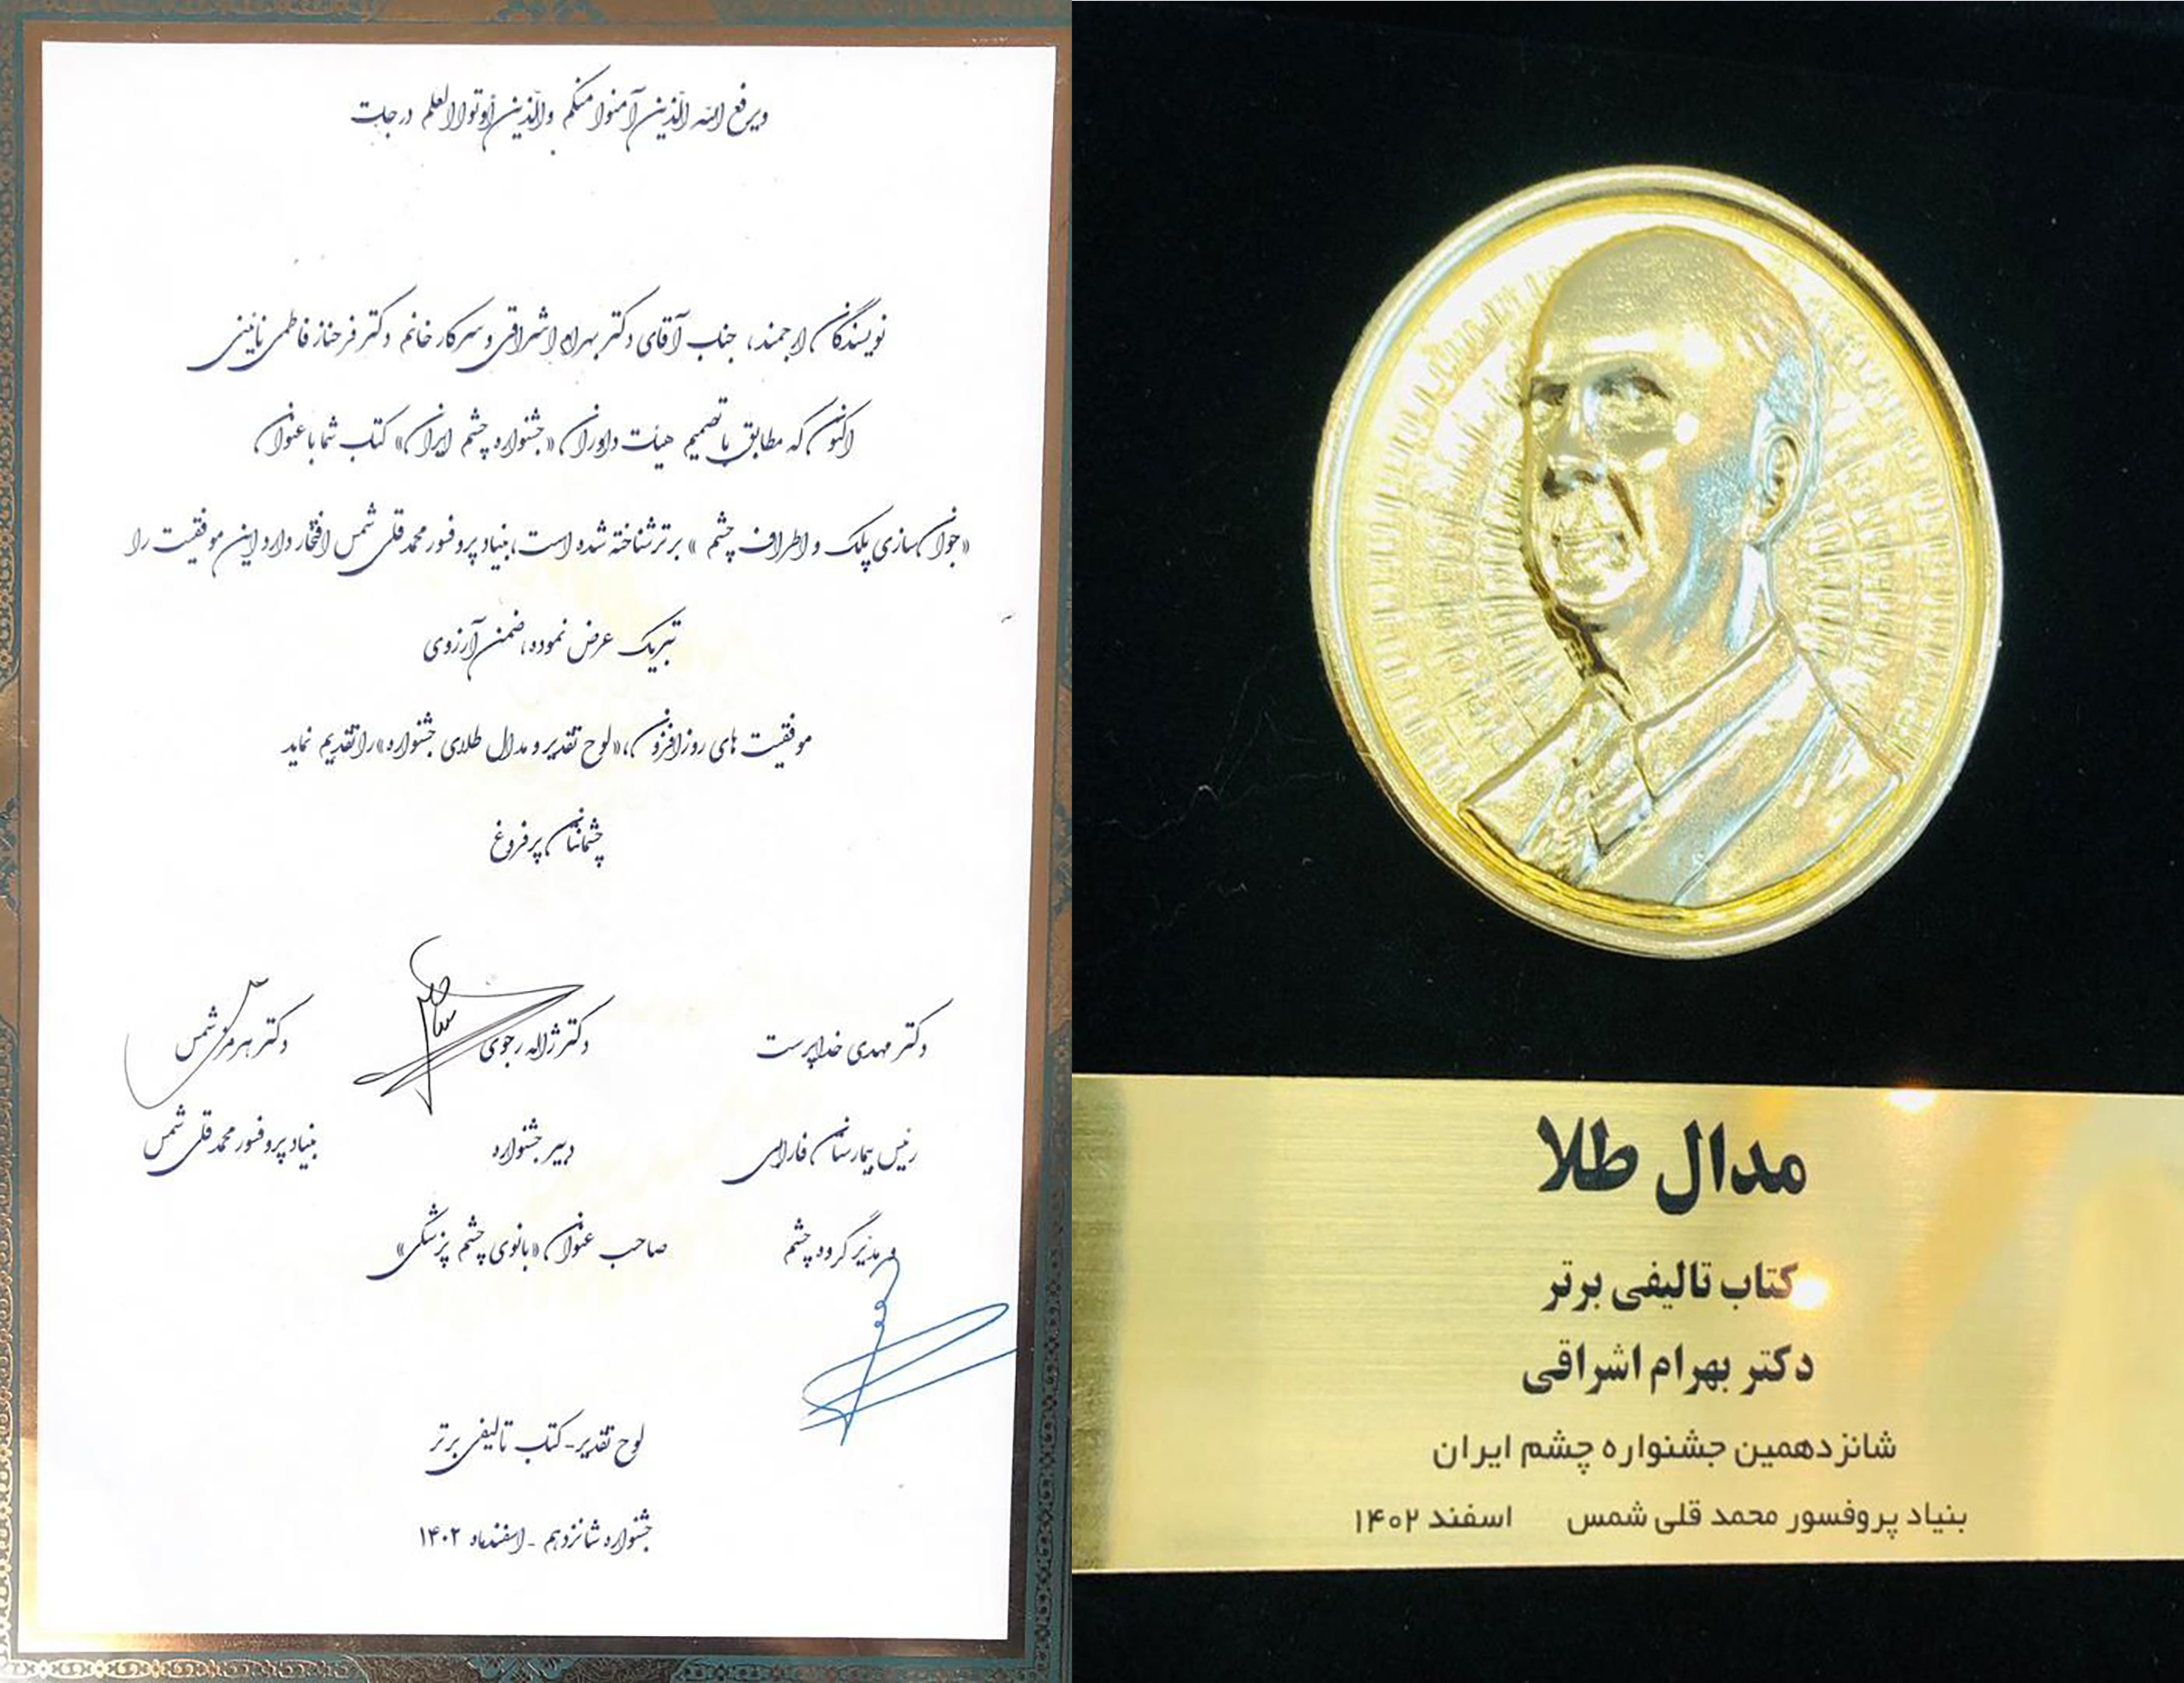 ویرفع الله الّذین آمنوا منکم والّذین أوتوا العلم درجات
نویسندگان ارجمند، جناب آقای دکتر بهرام اشراقی و سرکار خانم دکتر فرحناز فاطمی نائینی
اکنون که مطابق با تصمیم هیئت داوران «جشنواره چشم ایران» کتاب شما با عنوان
«جوان سازی پلک و اطراف چشم» برتر شناخته شده است، بنیاد پروفسور محمدقلی شمس افتخار دارد این موفقیت را
تبریک عرض نموده، ضمن آرزوی
موفقیت های روزافزون، «لوح تقدیر و مدال طلای جشنواره» را تقدیم نماید
چشمانتان پرفروغ
دکتر مهدی خداپرست
رئیس بیمارستان فارابی
و مدیر گروه چشم
دکتر ژاله رجوی
دبیر جشنواره
صاحب عنوان «بانوی چشم پزشکی»
دکتر هرمز شمس
بنیاد پروفسور محمدقلی شمس
لوح تقدیر - کتاب تالیفی برتر
جشنواره شانزدهم - اسفندماه ۱۴۰۲
مدال طلا
کتاب تالیفی برتر
دکتر بهرام اشراقی
شانزدهمین جشنواره چشم ایران
بنیاد پروفسور محمد قلی شمس اسفند ۱۴۰۲